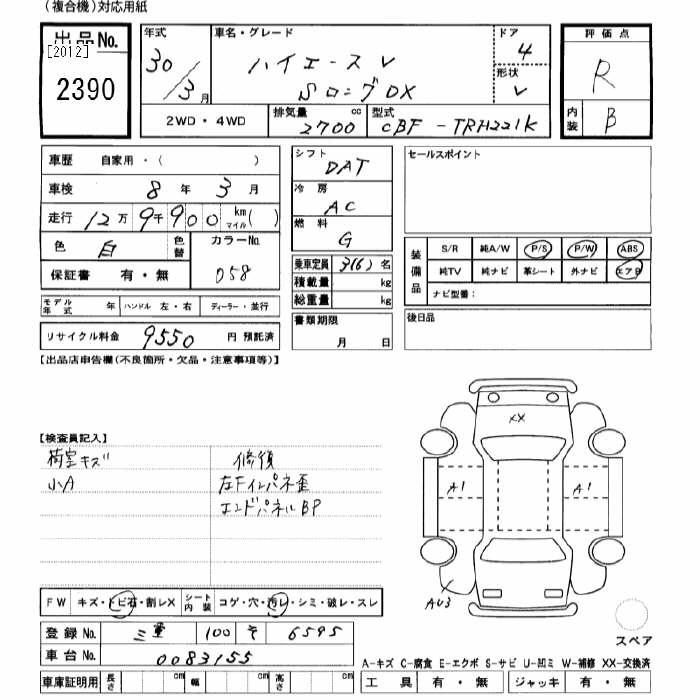 (複合機)対応用紙
出品No. [2012] 2390
年式 30/3月
車名・グレード ハイエースV SロングDX
ドア 4
形状 V
2WD・4WD
排気量 2700 cc
型式 CBF-TRH221K
評価点 R
内装 B
車歴 自家用・( )
車検 8年 3月
走行 12万9千900 km マイル( )
色 白 色替
カラーNo. 058
保証書 有・無
モデル年式 年 ハンドル 左・右 ディーラー・並行
リサイクル料金 9550 円 預託済
シフト DAT
冷房 AC
燃料 G
乗車定員 3(6)名
積載量 kg
総重量 kg
書類期限 月 日
セールスポイント
装備品 S/R 純A/W P/S P/W ABS
純TV 純ナビ 革シート 外ナビ エアB
ナビ型番:
後日品
【出品店申告欄(不良箇所・欠品・注意事項等)】
【検査員記入】
荷室キズ 修復
小A 左Fインパネ歪
エンドパネルBP
XX
A1 A1
AU3
スペア
FW キズ・トビ石・割レX シート内装 コゲ・穴・汚レ・シミ・破レ・スレ
登録No. 三重 100 そ 6595
車台No. 0083155
車庫証明用 長さ cm 幅 cm 高さ cm
A-キズ C-腐食 E-エクボ S-サビ U-凹ミ W-補修 XX-交換済
工具 有・無 ジャッキ 有・無